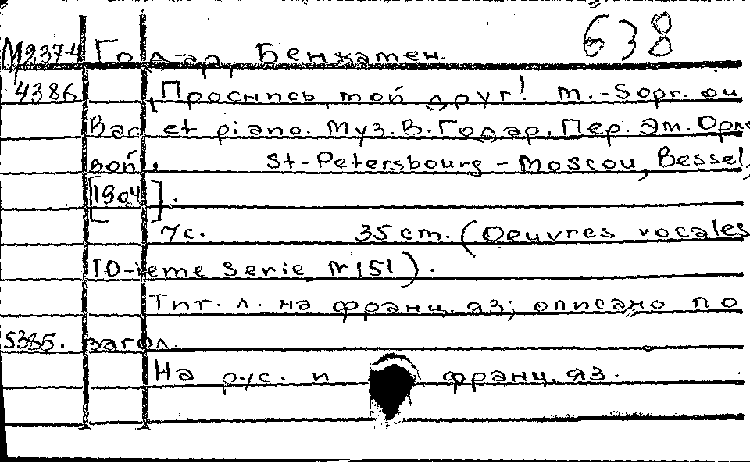 638
М237-4 Годар, Бенжамен.
4386 Проснись, мой друг! M.-Sopr. ou
Bar. et piano. Муз. Б. Годар. Пер. Эм. Орло-
вой. St-Petersbourg - Moscou, Bessel,
[1904].
7с. 35 cm. (Oeuvres vocales
10-ieme Serie, Nr 151).
Тит. л. на франц. яз; описано по
5385. загол.
На рус. и франц. яз.